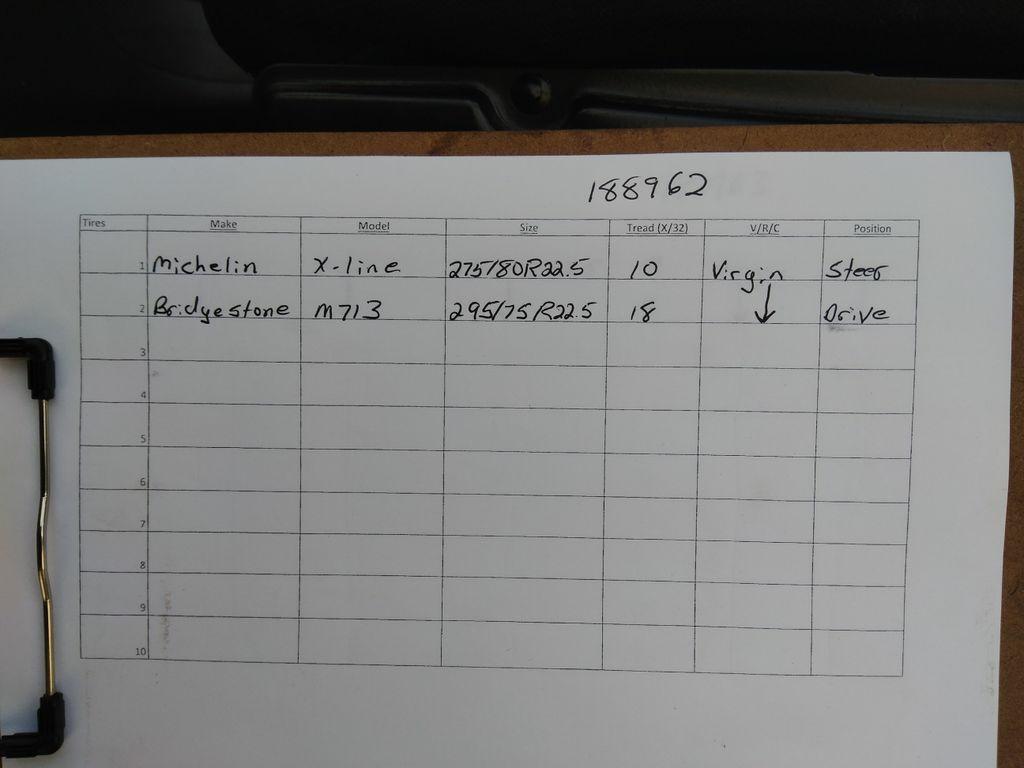 188962
Tires Make Model Size Tread (X/32) V/R/C Position
1 Michelin X-line 275/80R22.5 10 Virgin Steer
2 Bridgestone M713 295/75R22.5 18 ↓ Drive
3
4
5
6
7
8
9
10